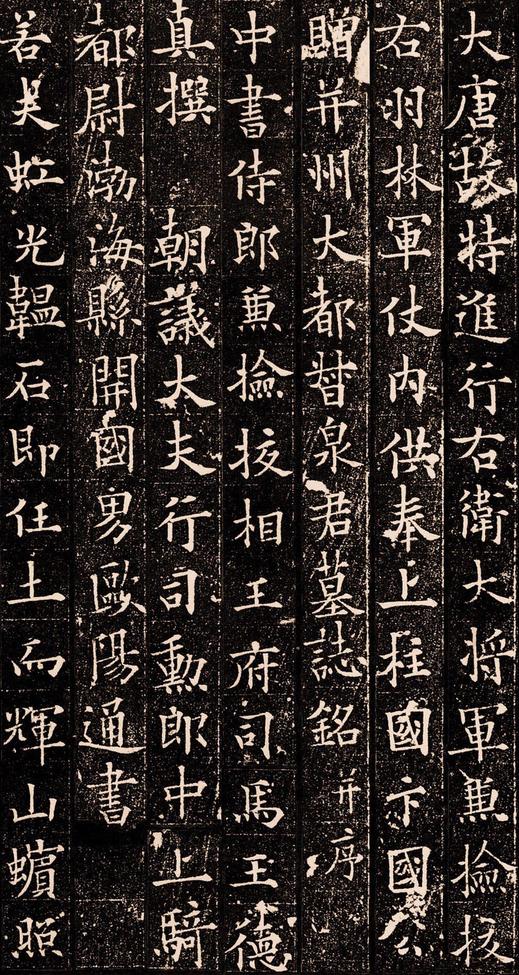 大唐故特進行右衛大将軍兼撿挍
右羽林軍仗内供奉上柱國卞國公
贈并州大都督泉君墓誌銘并序
中書侍郎兼撿挍相王府司馬王德
真撰 朝議大夫行司勳郎中上騎
都尉渤海縣開國男歐陽通書
若夫虹光韞石即任土而輝山蠙照